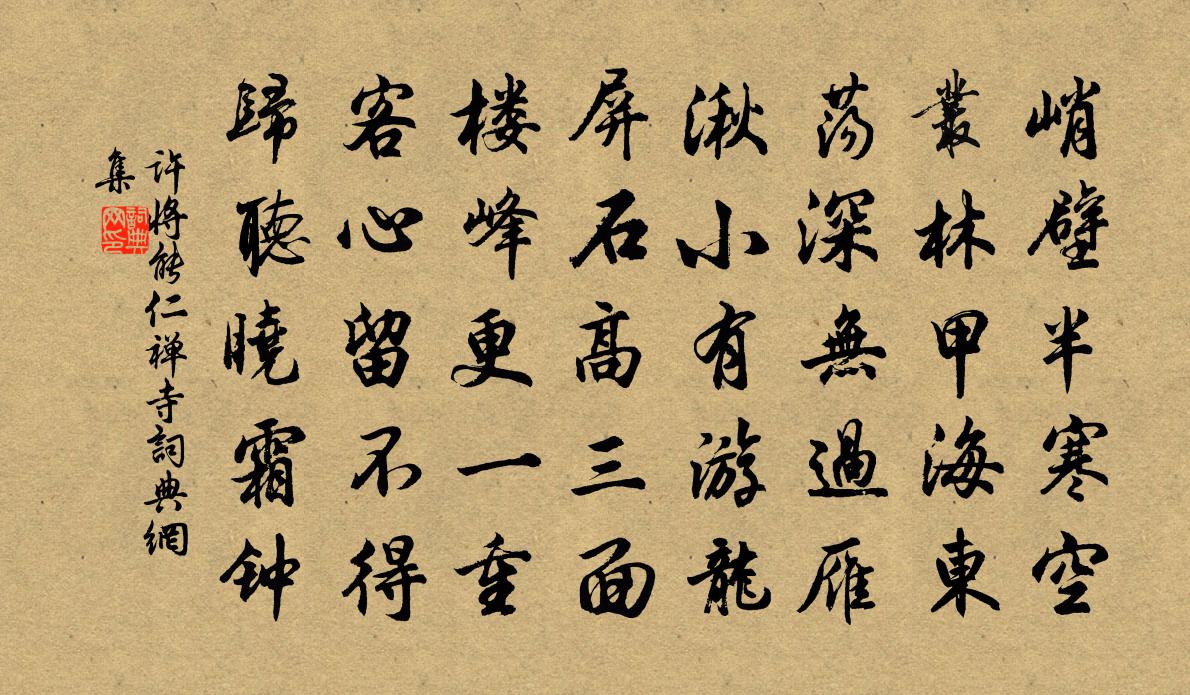 峭壁半寒空
叢林甲海東
蕩深無過雁
湫小有游龍
屏石高三面
楼峰更一重
客心留不得
歸聽曉霜钟
许将能仁禅寺詞典網
集
詞典網印